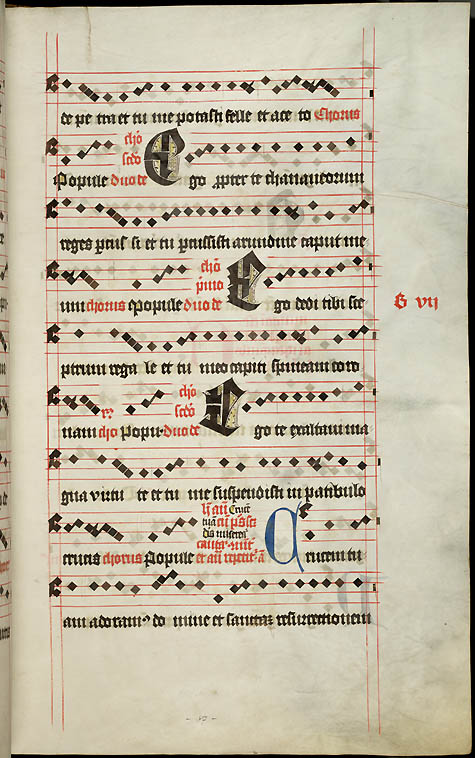 de pe tra et tu me potasti felle et ace to Chorus
chõ
scdo
Popule Duo de Ego ꝓpter te chananeorum
reges ꝑcussi et tu ꝑcussisti arundine caput me
chõ
pͥmo
um chorus Popule Duo de Ego dedi tibi sce
G vij
ptrum rega le et tu meo capiti spineam coro
chõ
scdo
nam cho Popu. Duo de Ego te exaltaui ma
gna virtu te et tu me suspendisti in patibulo
crucis chorus Popule
Crucem tu
am adoramꝰ do mine et sanctaꝫ resurrectionem